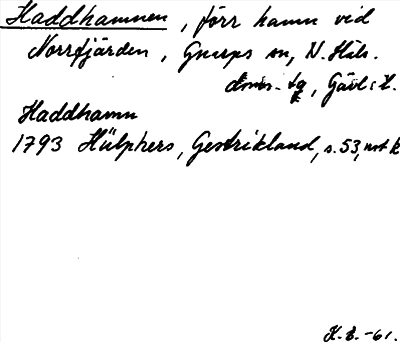 Haddhamnen, förr hamn vid
Norrfjärden, Gnarps sn, N. Häls.
doms. tg, Gävl:s l.
Haddhamn
1793 Hülphers, Gestrikland, s. 53, not k
K. E. -61.